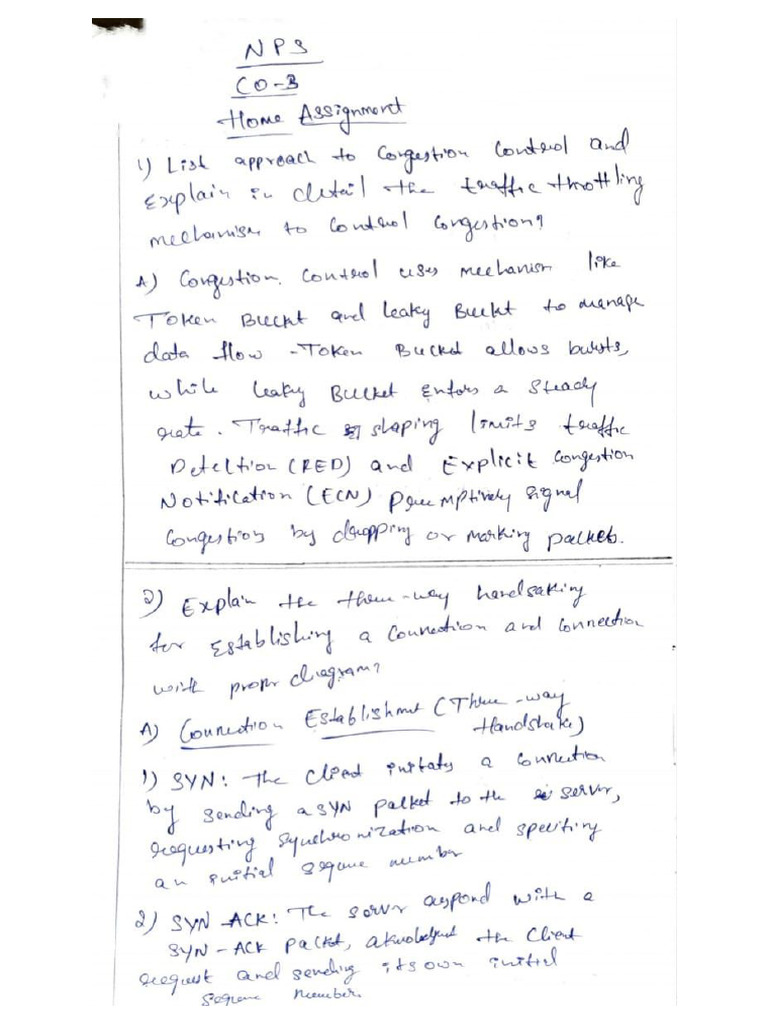 NPS
CO-3
Home Assignment
1) List approach to Congestion Control and
Explain in detail the traffic throttling
mechanism to control congestion?
A) Congestion control uses mechanism like
Token Bucket and leaky Bucket to manage
data flow - Token Bucket allows bursts,
while leaky Bucket Enfors a steady
rate. Traffic shaping limits traffic
Detection (RED) and Explicit Congestion
Notification (ECN) Preemptively signal
Congestion by dropping or marking packets.
2) Explain the three-way handsaking
for Establishing a Connection and Connection
with propr diagram?
A) Connection Establishmet (Three-way
Handshake)
1) SYN: The Client initiats a connection
by sending a SYN packet to the server,
requesting synchronization and specifing
an initial number
2) SYN-ACK: The server respond with a
SYN-ACK Packet, the client
request and sending its own initial
number.